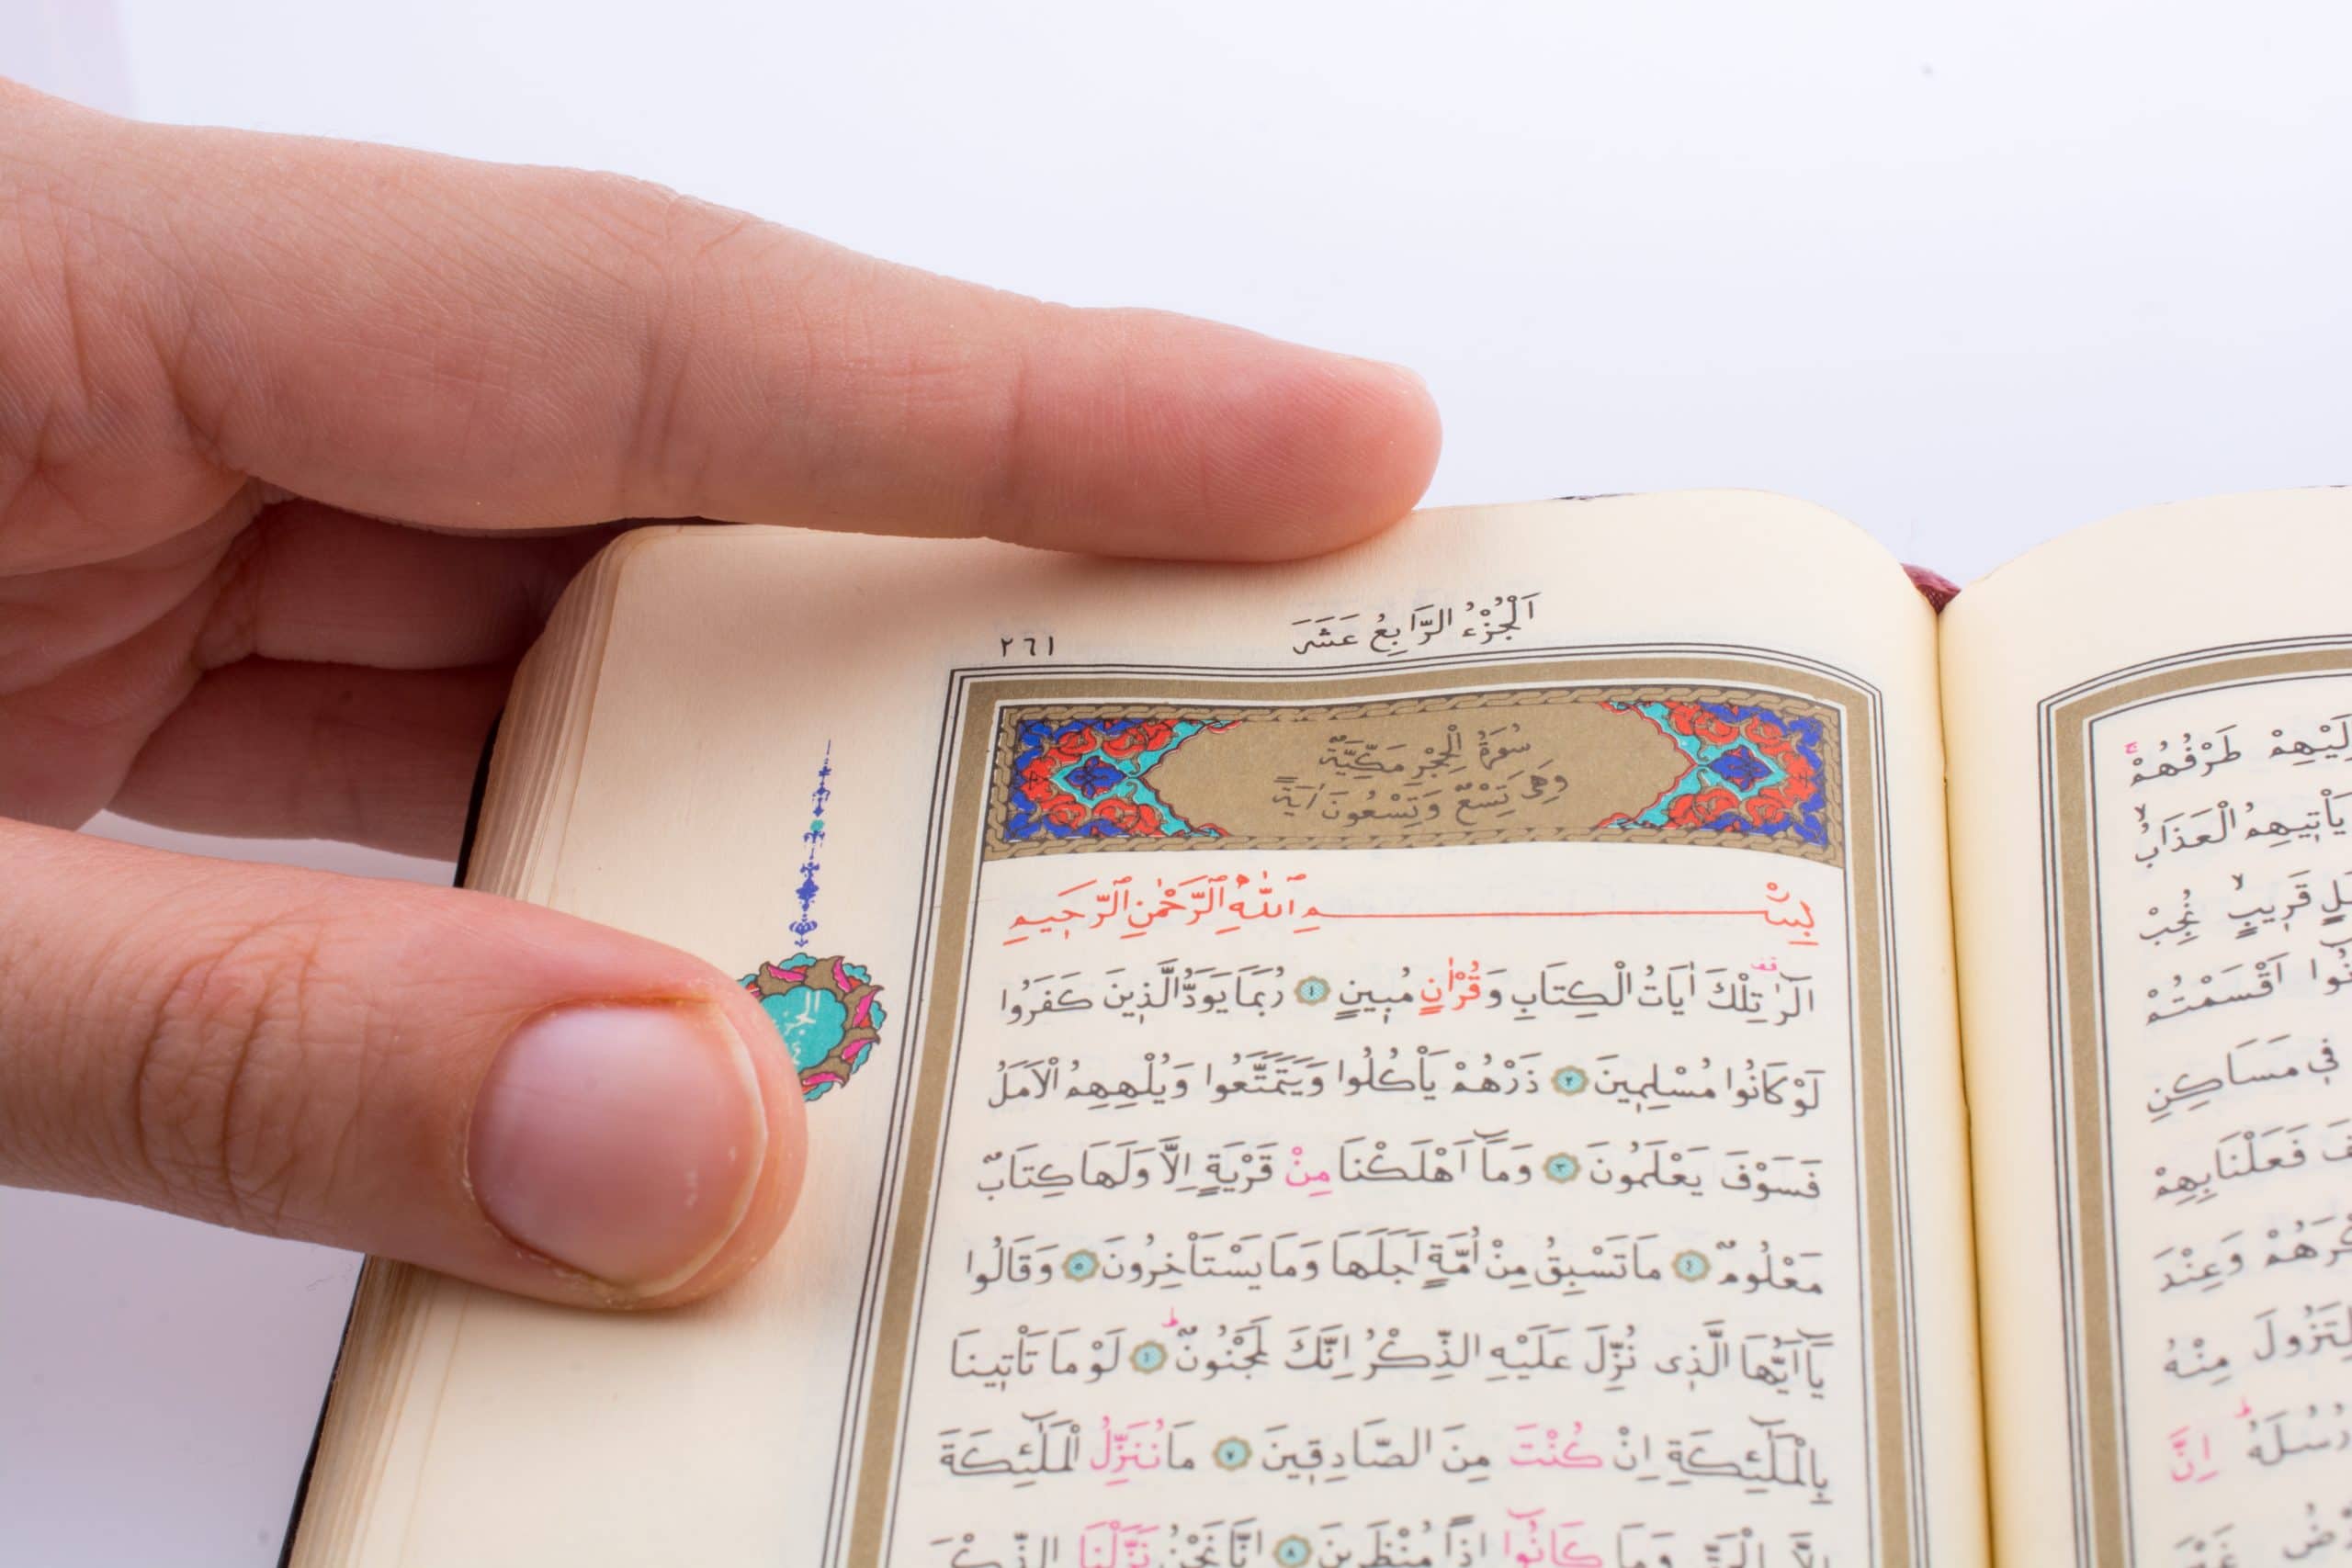 اَلْجُزْءُ الرَّابِعُ عَشَرَ
٢٦١
سُورَةُ الْحِجْرِ مَكِّيَّةٌ
وَهِىَ تِسْعٌ وَتِسْعُونَ اٰيَةً
بِسْمِ اللّٰهِ الرَّحْمٰنِ الرَّحِيمِ
الٓرٰ تِلْكَ اٰيَاتُ الْكِتَابِ وَقُرْاٰنٍ مُبِينٍ ١ رُبَمَا يَوَدُّ الَّذِينَ كَفَرُوا
لَوْ كَانُوا مُسْلِمِينَ ٢ ذَرْهُمْ يَأْكُلُوا وَيَتَمَتَّعُوا وَيُلْهِهِمُ الْاَمَلُ
فَسَوْفَ يَعْلَمُونَ ٣ وَمَٓا اَهْلَكْنَا مِنْ قَرْيَةٍ اِلَّا وَلَهَا كِتَابٌ
مَعْلُومٌ ٤ مَا تَسْبِقُ مِنْ اُمَّةٍ اَجَلَهَا وَمَا يَسْتَأْخِرُونَ ٥ وَقَالُوا
يَٓا اَيُّهَا الَّذِى نُزِّلَ عَلَيْهِ الذِّكْرُ اِنَّكَ لَمَجْنُونٌ ٦ لَوْ مَا تَأْتِينَا
بِالْمَلٰٓئِكَةِ اِنْ كُنْتَ مِنَ الصَّادِقِينَ ٧ مَا نُنَزِّلُ الْمَلٰٓئِكَةَ
اِلَّا بِالْحَقِّ وَمَا كَانُٓوا اِذًا مُنْظَرِينَ ٨ اِنَّا نَحْنُ نَزَّلْنَا الذِّكْرَ
اِلَيْهِمْ طَرْفُهُمْ
يَأْتِيهِمُ الْعَذَابُ
قَرِيبٍ نُجِبْ
اَقْسَمْتُمْ
فِى مَسَاكِنِ
فَعَلْنَا بِهِمْ
وَعِنْدَ
لِتَزُولَ مِنْهُ
رُسُلَهُ اِنَّ